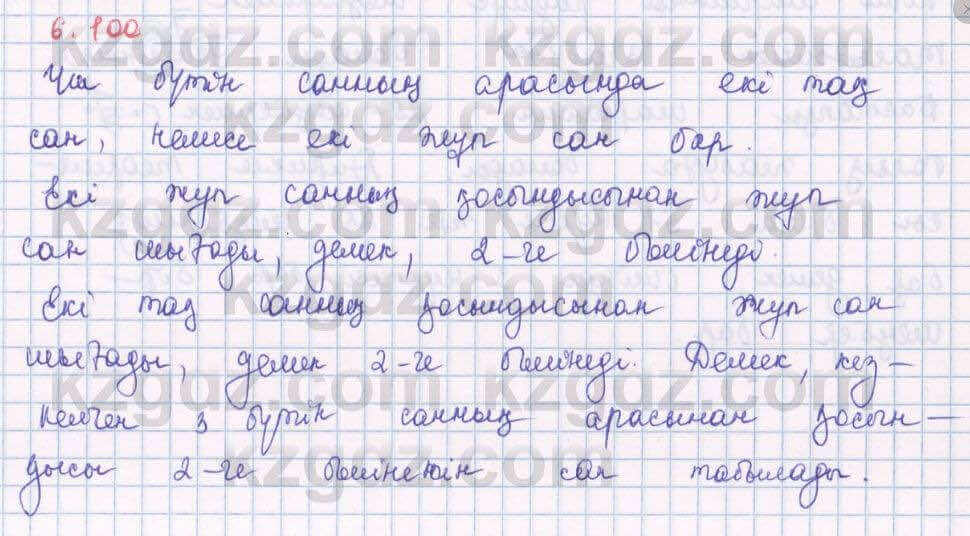 6.100
Үш бүтін санның арасында екі тақ
сан, немесе екі жұп сан бар.
Екі жұп санның қосындысынан жұп
сан шығады, демек, 2-ге бөлінеді.
Екі тақ санның қосындысынан жұп сан
шығады, демек 2-ге бөлінеді. Демек, кез-
келген 3 бүтін санның арасынан қосын-
дысы 2-ге бөлінетін сан табылады.
kzgdz.com